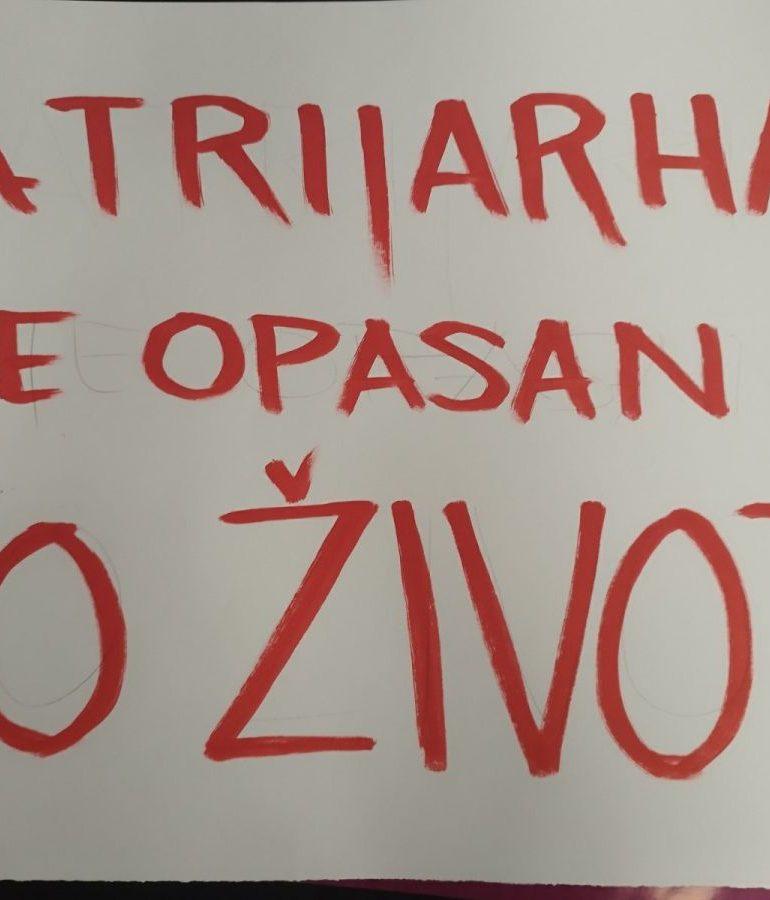 ATRIJARHA
E OPASAN
O ŽIVOT